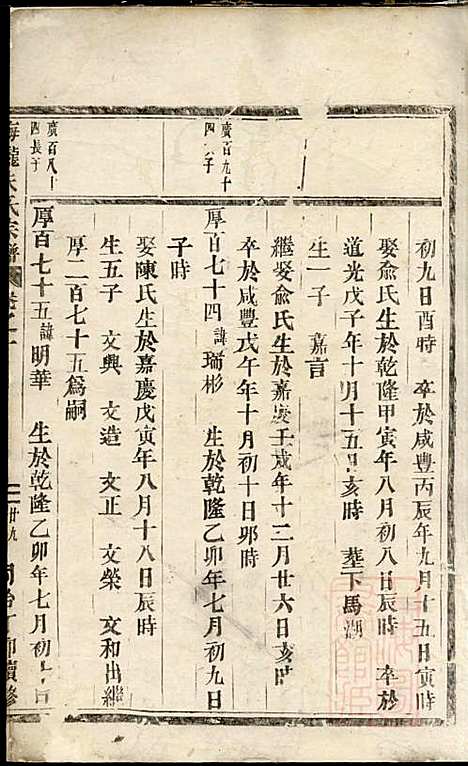 初九日酉時　卒於咸豐丙辰年九月十五日寅時
娶俞氏生於乾隆甲寅年八月初八日辰時　卒於
道光戊子年十月十五日亥時　塟下馬湖
生一子　嘉言
繼娶俞氏生於嘉慶壬戌年十二月廿六日亥時
卒於咸豐戊午年十月初十日卯時
廣百九十
四　子
厚百七十四諱瑞彬　生於乾隆乙卯年七月初九日
子時
娶陳氏生於嘉慶戊寅年八月十八日辰時
生五子　文興　文造　文正　文榮　文和出繼
厚二百七十五爲嗣
廣百八十
四長子
厚百七十五諱明華　生於乾隆乙卯年七月初　日
氏宗譜
廿九
續修